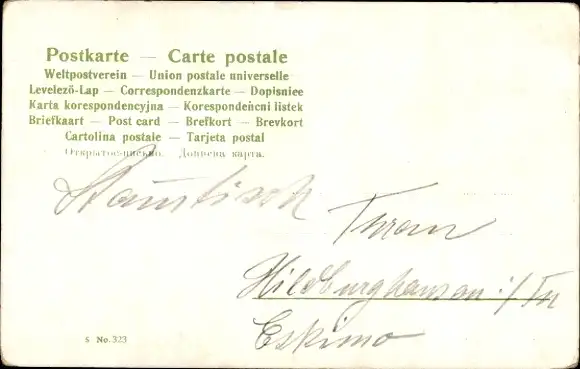 Postkarte — Carte postale
Weltpostverein — Union postale universelle
Levelező-Lap — Correspondenzkarte — Dopisniee
Karta korespondencyjna — Korespondeńcni listek
Briefkaart — Post card — Brefkort — Brevkort
Cartolina postale — Tarjeta postal
Открытое письмо. Дописна карта.
Stammtisch
Hildburghausen i/Th
Eskimo
S No. 323